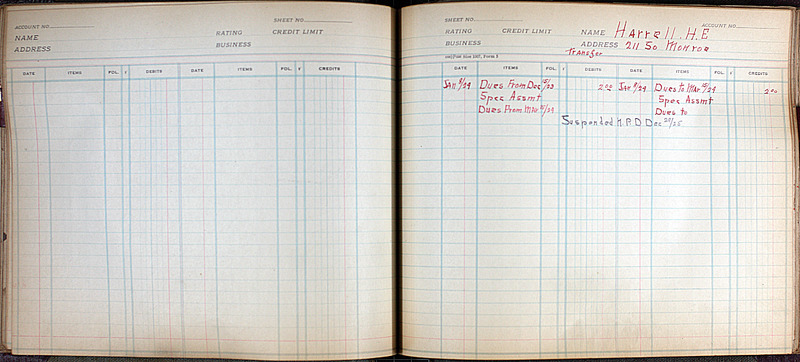 SHEET NO.
ACCOUNT NO.
NAME RATING CREDIT LIMIT
ADDRESS BUSINESS
DATE ITEMS FOL. √ DEBITS DATE ITEMS FOL. √ CREDITS
SHEET NO. ACCOUNT NO.
RATING CREDIT LIMIT NAME Harrell. H. E
BUSINESS ADDRESS 211 So Monroe
Transfer
DATE ITEMS FOL. √ DEBITS DATE ITEMS FOL. √ CREDITS
Jan 9/24 Dues From Dec 15/23 2 00 Jan 9/24 Dues to Mar 15/24 2 00
Spec Assmt Spec Assmt
Dues From Mar 15/24 Dues to
Suspended N. P. D Dec 20/25